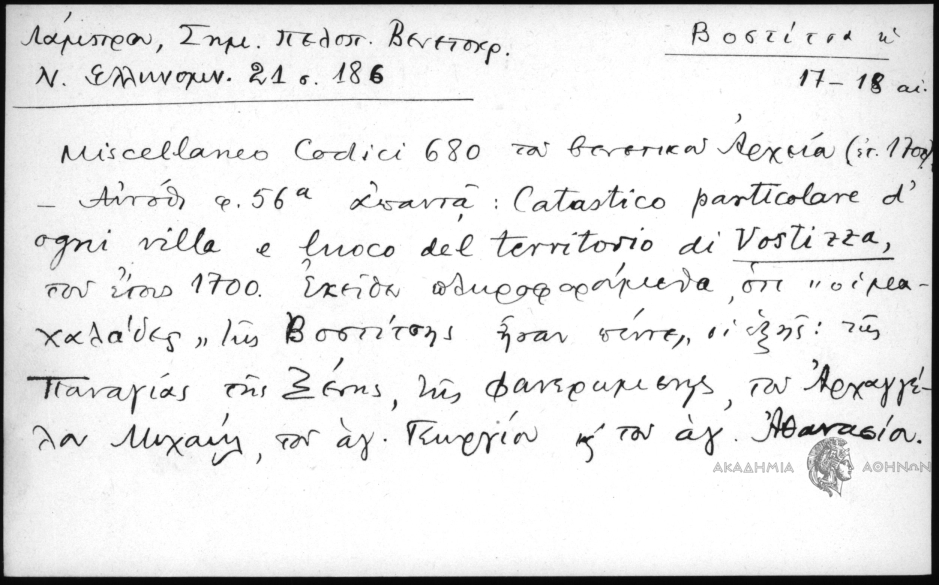 Λάμπρου, Σημ. Πελοπ. Βενετοκρ.
Ν. Ἑλληνομν. 21 σ. 186
Βοστίτσα ἡ
17-18 αἰ.
Miscellaneo Codici 680 τοῦ βενετικοῦ Ἀρχεία (ἔτ. 1700)
- Αὐτόθι φ. 56α ἀπαντᾷ : Catastico particolare d'
ogni villa e luoco del territorio di Vostizza,
τοῦ ἔτους 1700. Ἐκεῖθεν πληροφορούμεθα, ὅτι "οἱ μα-
χαλάδες" τῆς Βοστίτσης ἦσαν πέντε, οἱ ἑξῆς: τῆς
Παναγίας τῆς Ξένης, τῆς Φανερωμένης, τοῦ Ἀρχαγγέ-
λου Μιχαήλ, τοῦ ἁγ. Γεωργίου καὶ τοῦ ἁγ. Ἀθανασίου.
ΑΚΑΔΗΜΙΑ ΑΘΗΝΩΝ